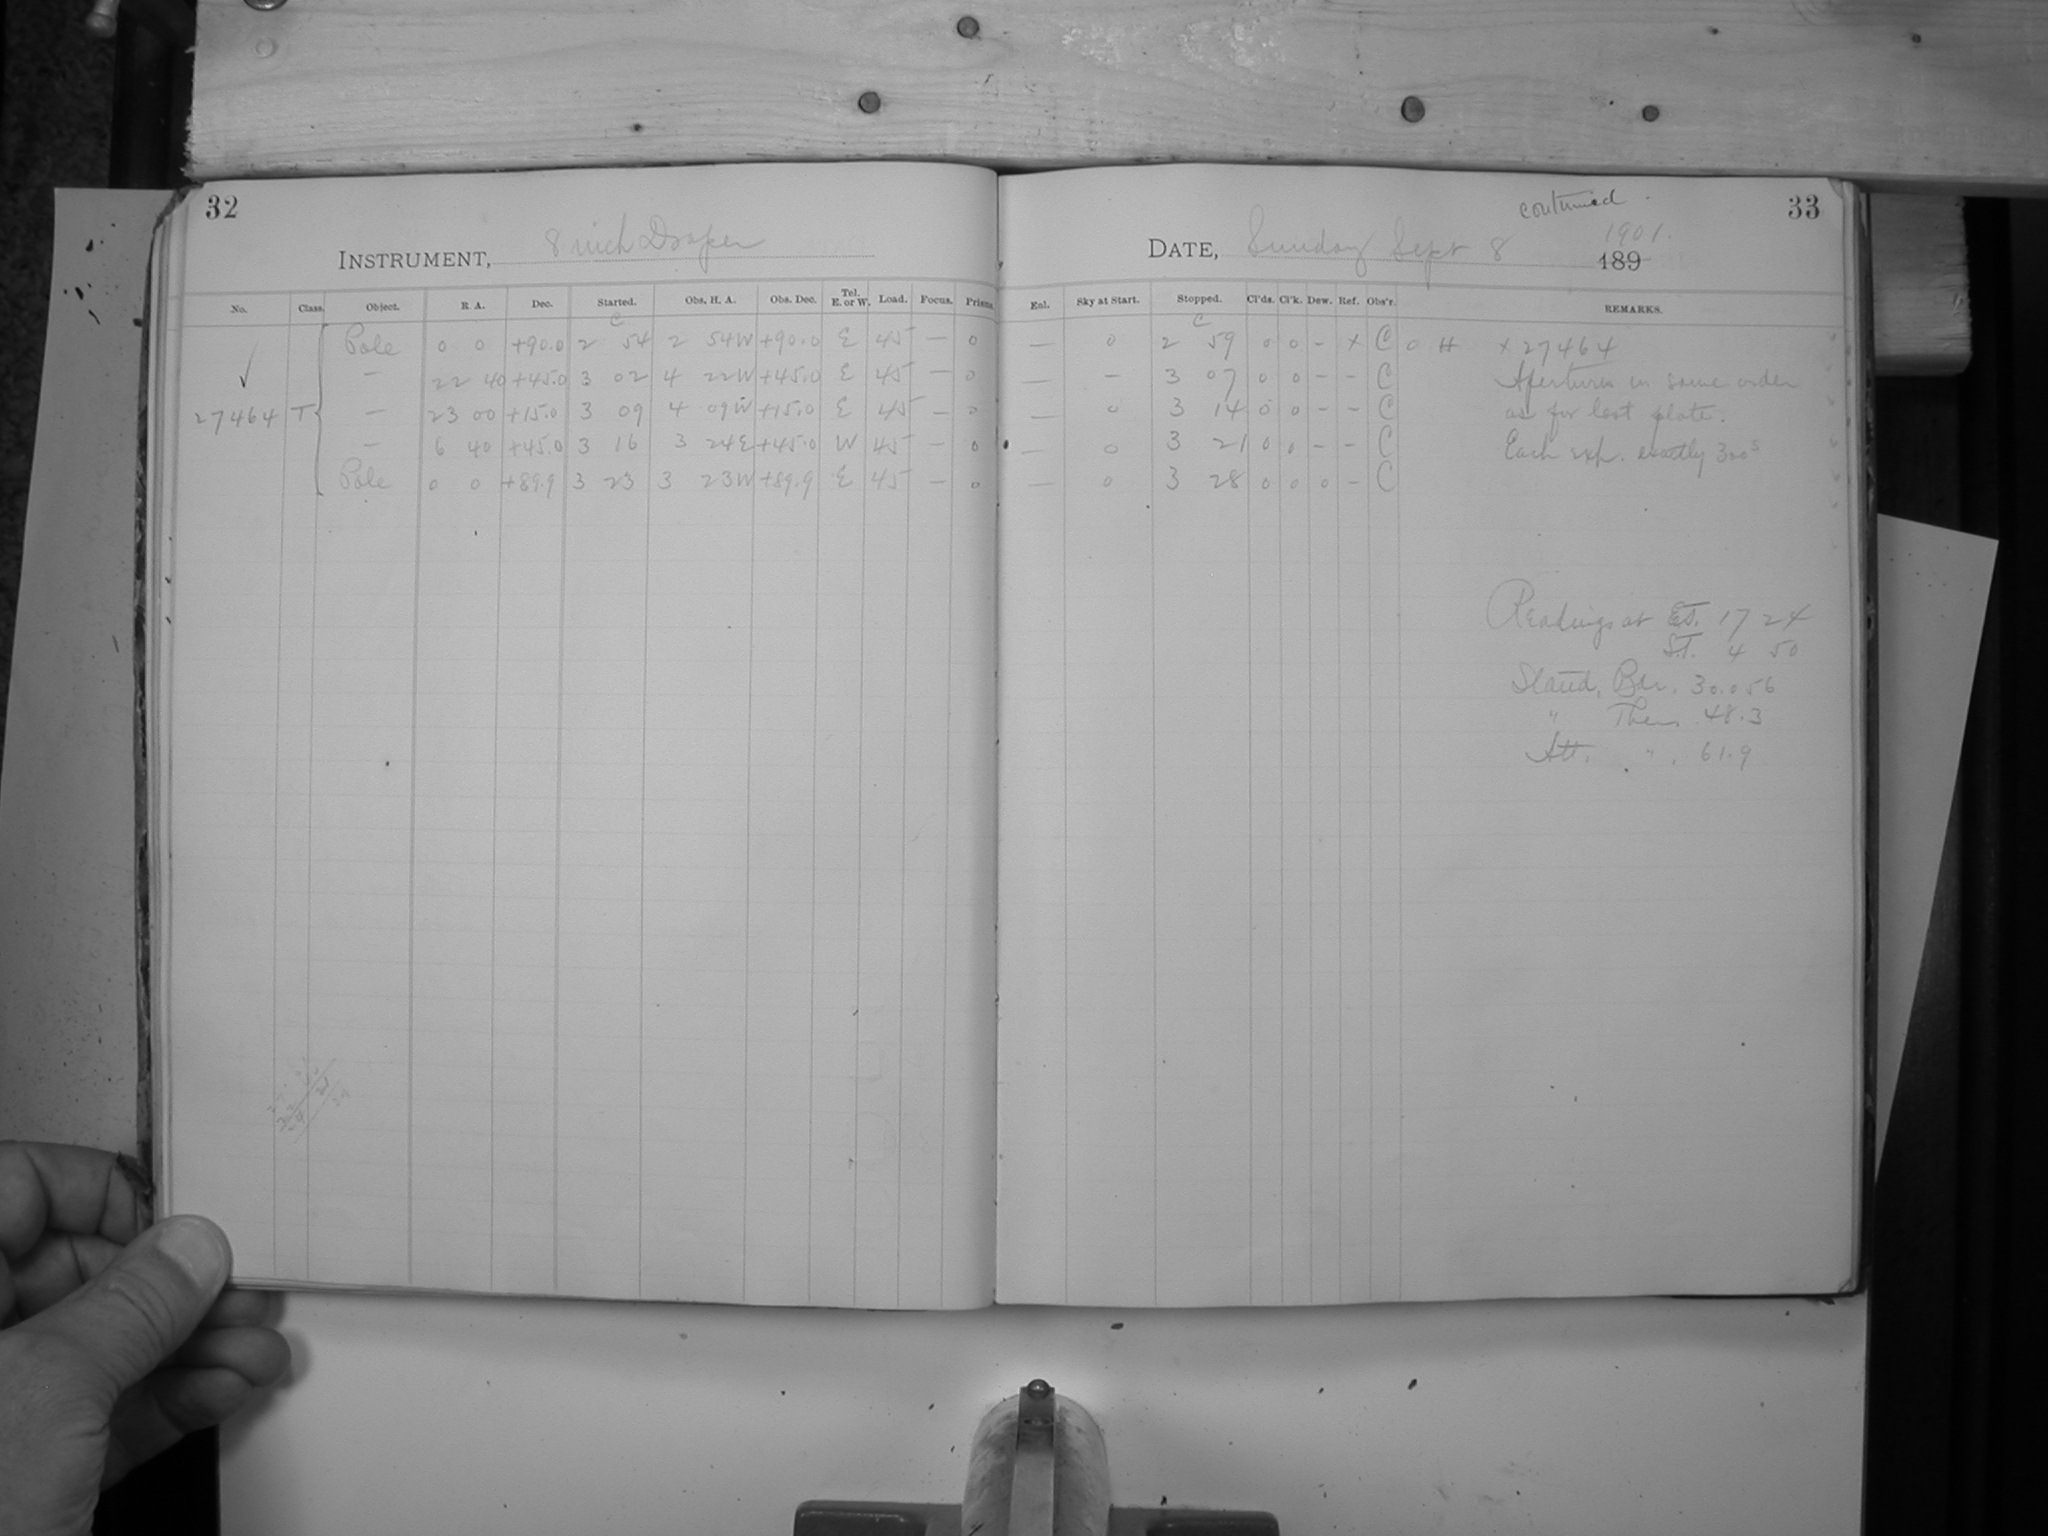 32
INSTRUMENT, 8 inch Draper
No. Class. Object. R. A. Dec. Started. Obs. H. A. Obs. Dec. Tel. E. or W. Load. Focus. Prisms.
C
Pole 0 0 +90.0 2 54 2 54W +90.0 E 45 — 0
— 22 40 +45.0 3 02 4 22W +45.0 E 45 — 0
27464 T — 23 00 +15.0 3 09 4 09W +15.0 E 45 — 0
— 6 40 +45.0 3 16 3 24E +45.0 W 45 — 0
Pole 0 0 +89.9 3 23 3 23W +89.9 E 45 — 0
continued 33
DATE, Sunday Sept 8 1901. 189
Enl. Sky at Start. Stopped. Cl'ds. Cl'k. Dew. Ref. Obs'r. REMARKS.
C
— 0 2 59 0 0 - x C 0 H x 27464
— - 3 07 0 0 - - C Apertures in same order
— 0 3 14 0 0 - - C as for last plate.
— 0 3 21 0 0 - - C Each exp. exactly 300s
— 0 3 28 0 0 0 - C
Readings at E.T. 17 24
S.T. 4 50
Stand. Bar. 30.056
" Ther. 48.3
Att. " . 61.9